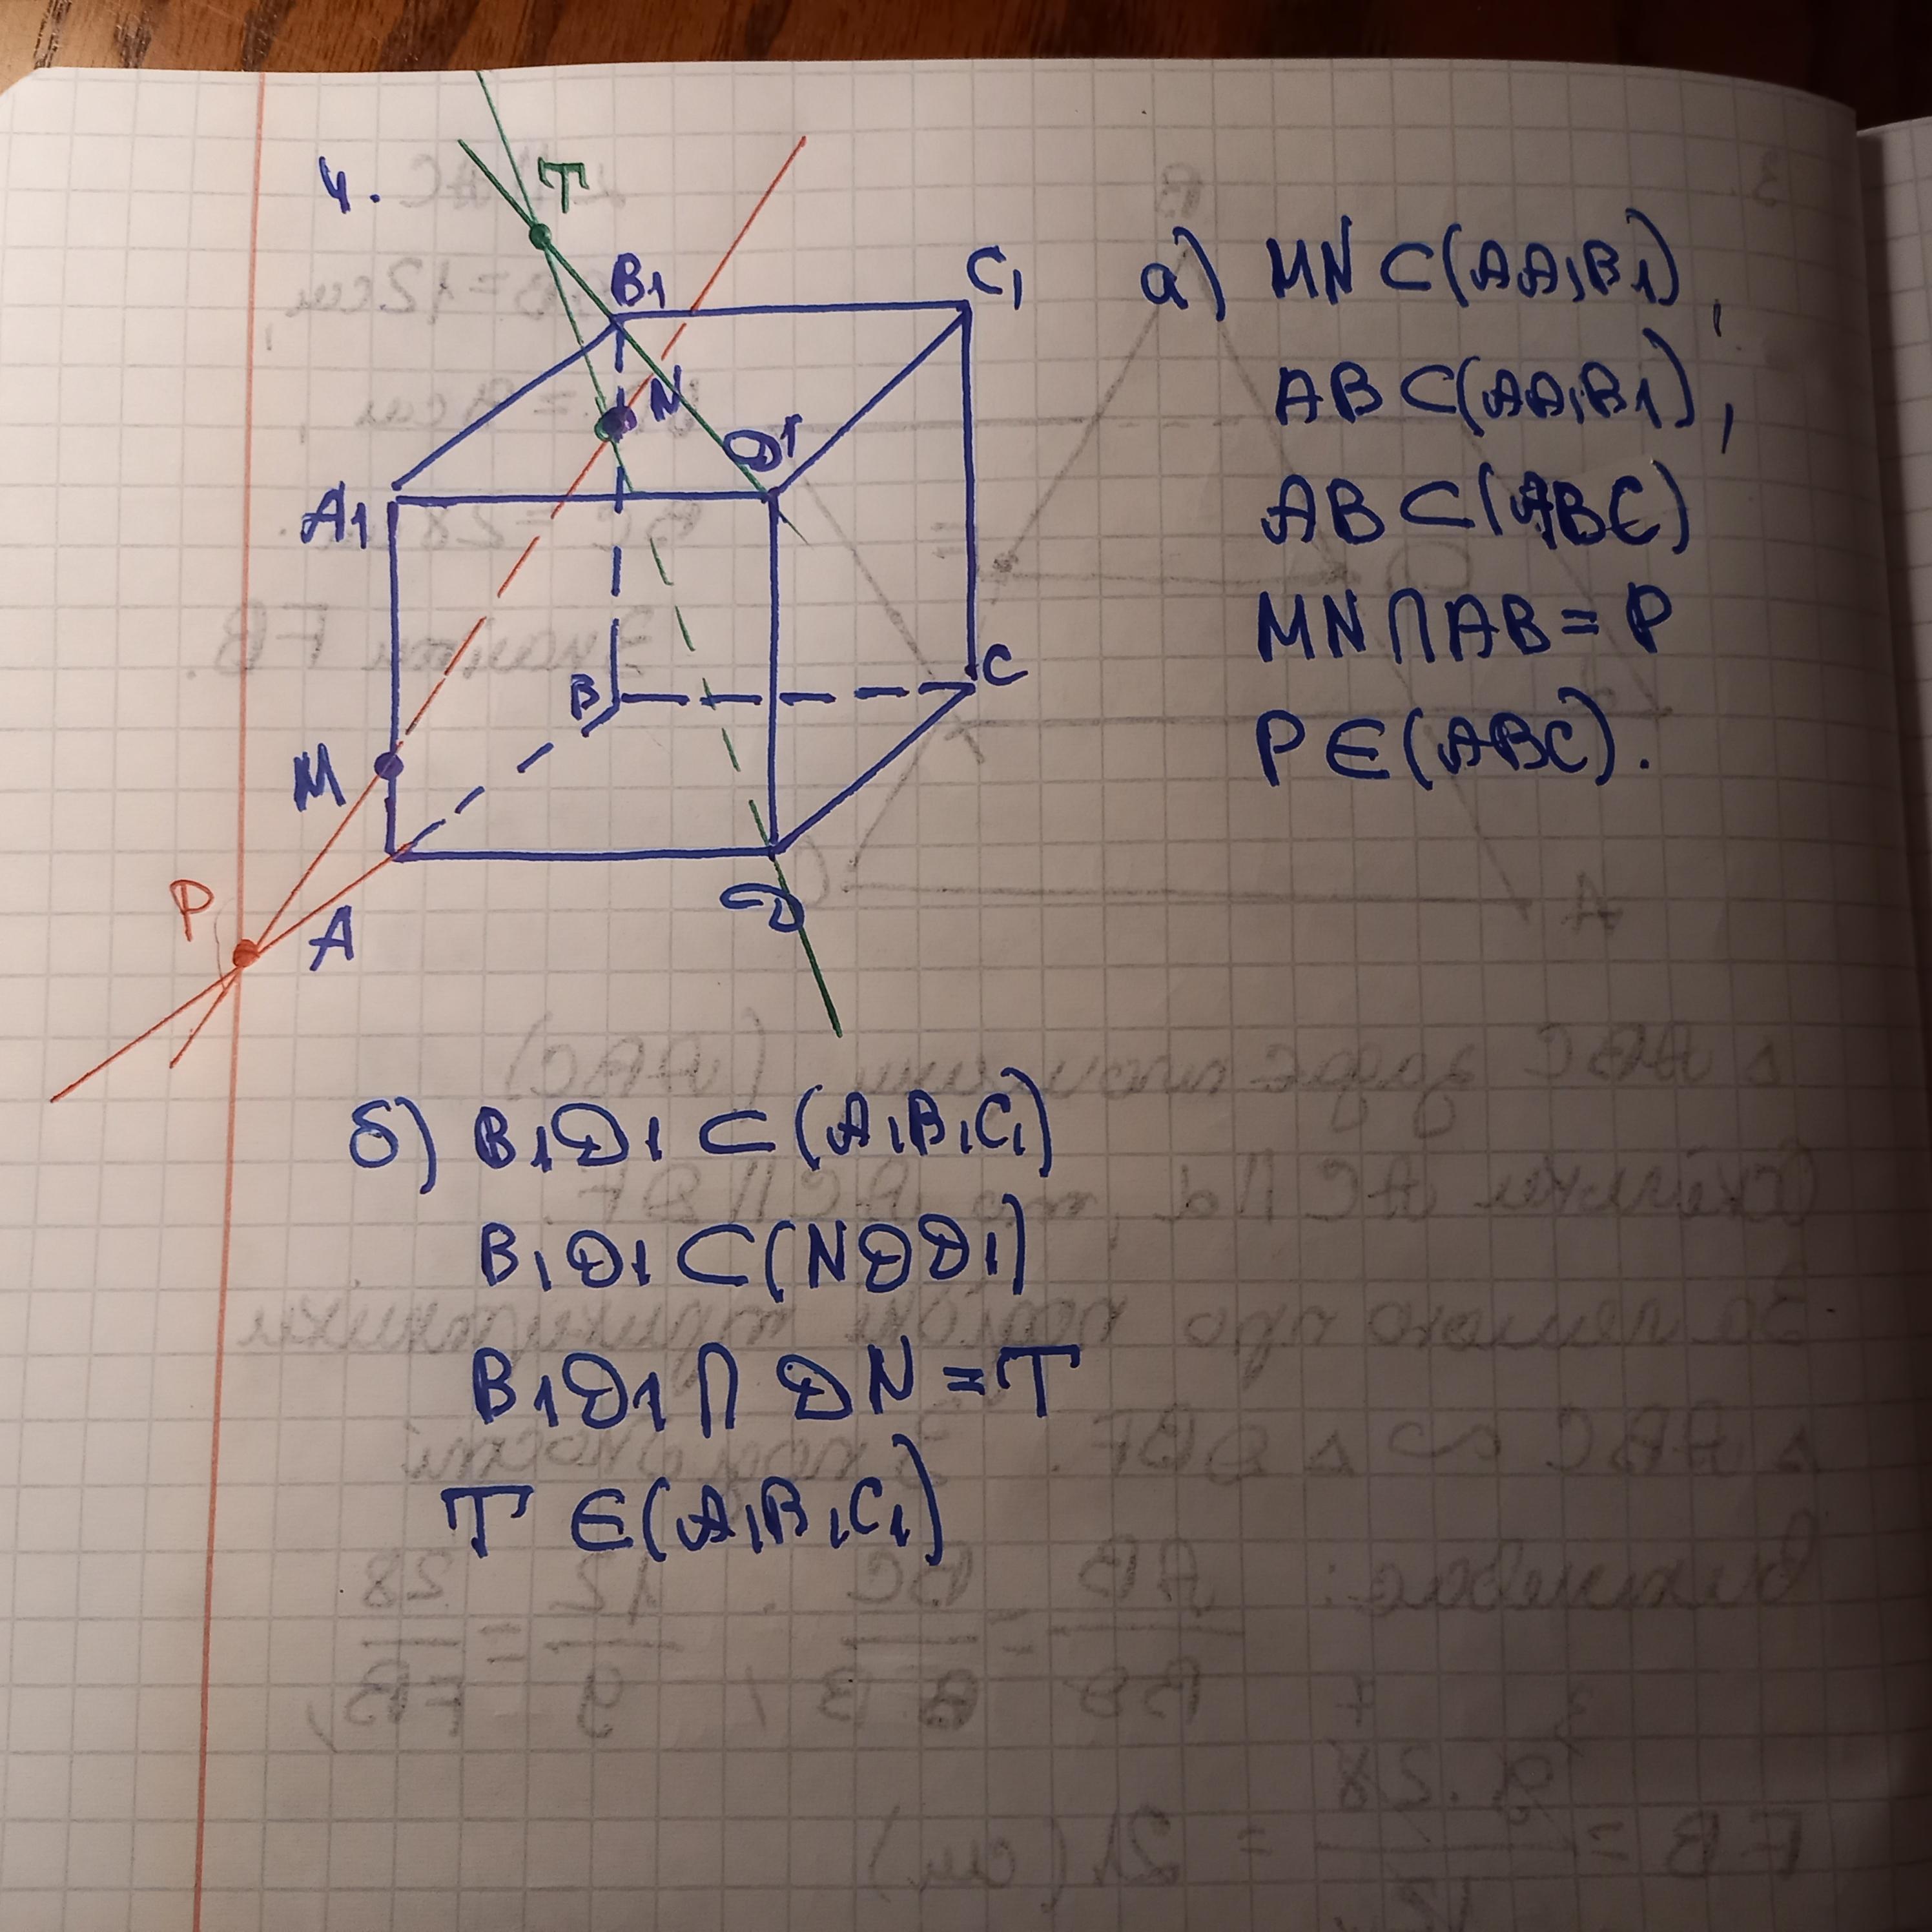 4.
T
B1
C1
N
D1
A1
B
C
M
P
A
D
а) MN ⊂ (AA1B1),
AB ⊂ (AA1B1),
AB ⊂ (ABC)
MN ∩ AB = P
P ∈ (ABC).
б) B1D1 ⊂ (A1B1C1)
B1D1 ⊂ (NDD1)
B1D1 ∩ DN = T
T ∈ (A1B1C1)